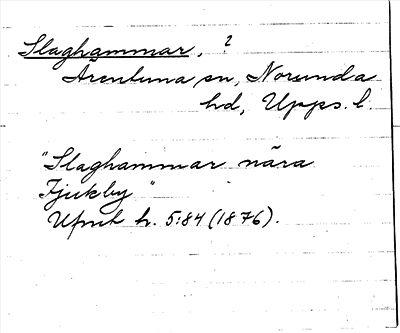 Slaghammar. ?
Ärentuna sn, Norunda
hd, Upps. l.
"Slaghammar nära
Fjukby"
Upmt h. 5:84 (1876).